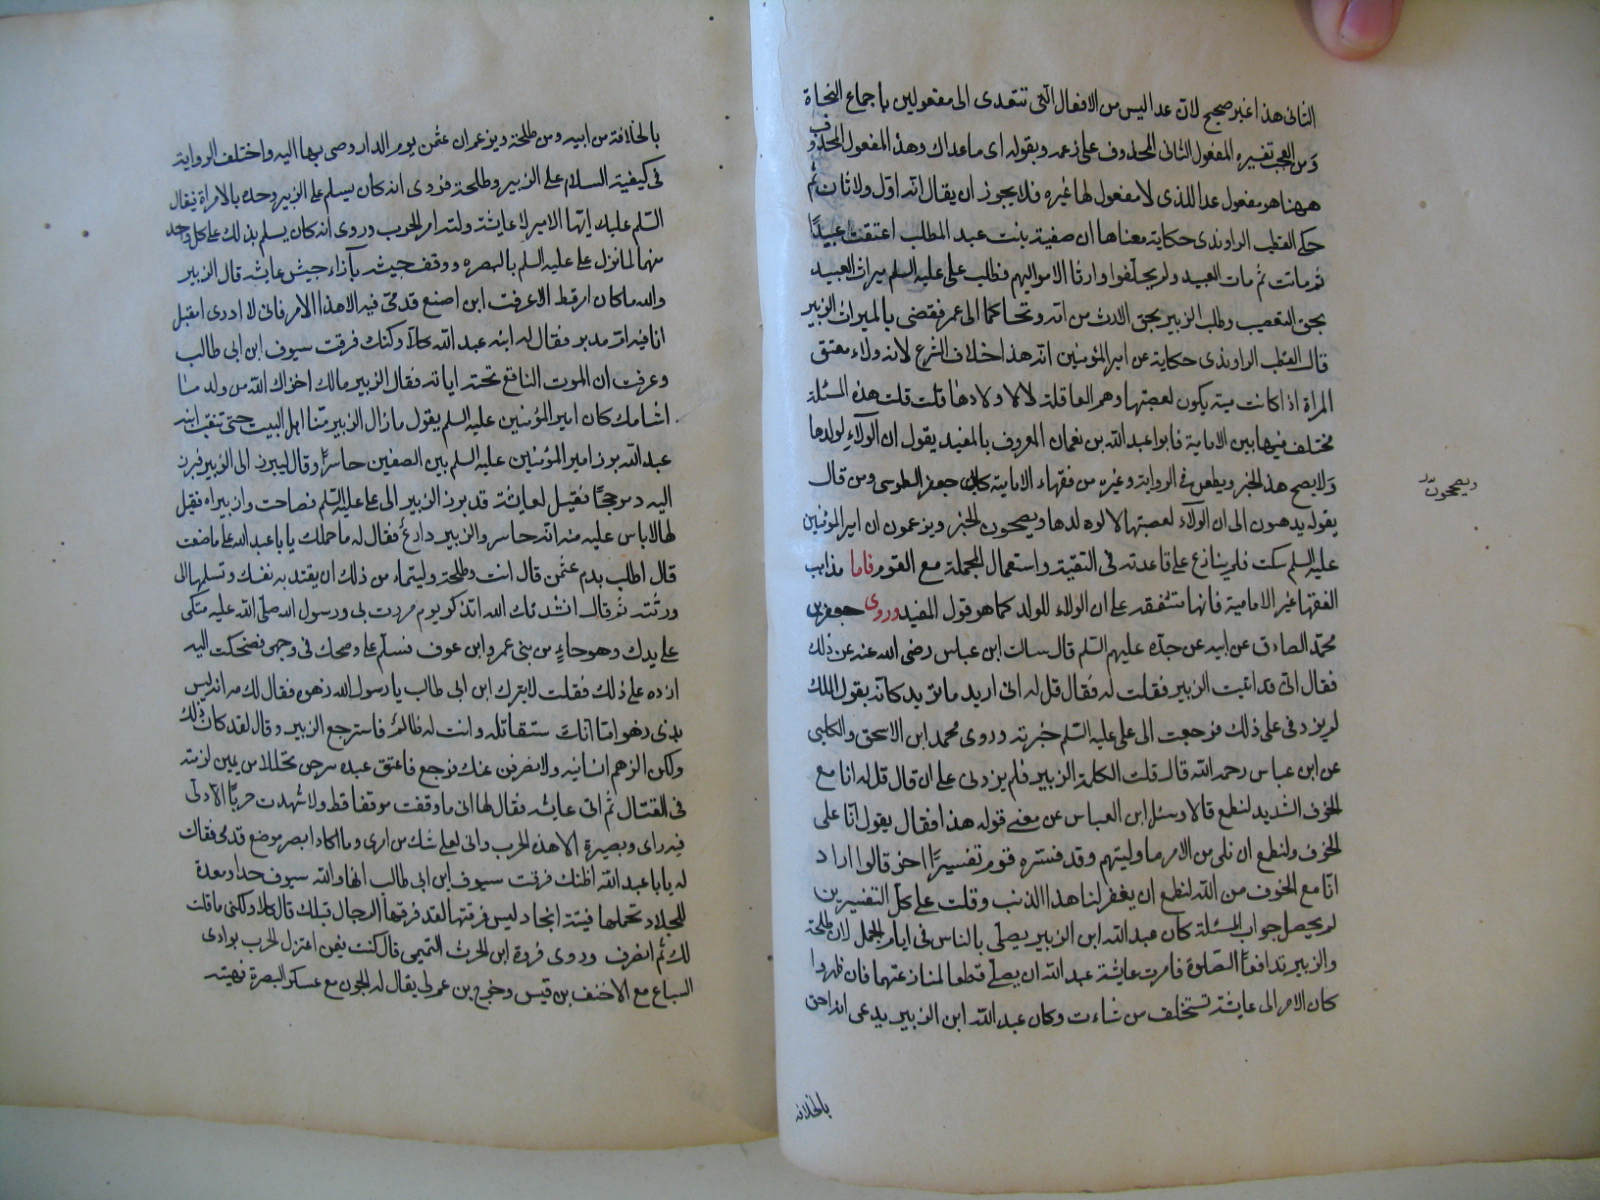 الثانى هذا غير صحيح لان عدا ليس من الافعال التى تتعدى الى مفعولين باجماع النحاة
ومن العجب تفسيره المفعول الثانى المحذوف على زعمه وبقوله اى ما عداك وهذا المفعول المحذوف
ههنا هو مفعول عدا الذى لا مفعول لها غيره فلا يجوز ان يقال انه اول ولا ثان ثم
حكى القطب الراوندى حكاية معناها ان صفية بنت عبد المطلب اعتقت عبيدا
ثم ماتت ثم مات العبيد ولم يخلفوا وارثا الا مواليهم فطلب على عليه السلم ميراث العبيد
بحق التعصيب وطلب الزبير بحق الارث من امه وتحاكما الى عمر فقضى بالميراث للزبير
قال القطب الراوندى حكاية عن امير المؤمنين انه هذا خلاف الشرع لانه ولاء معتق
المراة اذا كانت ميتة يكون لعصبتها وهم العاقلة لا لاولادها قلت قلت هذه المسئلة
مختلف فيها بين الامامية فابو عبد الله بن نعمان المعروف بالمفيد يقول ان الولاء لولدها
ولا يصح هذا الخبر ويطعن فى الرواية وغيره من فقهاء الامامية كابى جعفر الطوسى ومن قال
بقوله يذهبون الى ان الولاء لعصبتها لا لولدها ويصححون الخبر ويزعمون ان امير المؤمنين
عليه السلم سكت فلم ينازع على قاعدته فى التقية واستعمال المجملة مع القوم فاما مذاهب
الفقهاء غير الامامية فانها متفقة على ان الولاء للولد كما هو قول المفيد وروى جعفر بن
محمد الصادق عن ابيه عن جده عليهم السلم قال سالت ابن عباس رضى الله عنه عن ذلك
فقال انى قد اتيت الزبير فقلت له فقال قل له انى اريد ما تريد كانه يقول الملك
لم يزدنى على ذلك فرجعت الى على عليه السلم خبرته وروى محمد ابن الاسحق والكلبى
عن ابن عباس رحمه الله قال قلت الكلمة الزبير فلم يزدنى على ان قال قل له انا مع
الخوف الشديد لنطمع قالا وسئل ابن العباس عن معنى قوله هذا فقال يقول انا على
الخوف ولنطمع ان نلى من الامر ما وليتم وقد فسره قوم تفسيرا اخر قالوا اراد
انا مع الخوف من الله لنطمع ان يغفر لنا هذا الذنب وقلت على كل التفسيرين
لم يحصل جواب المسئلة كان عبد الله ابن الزبير يصلى بالناس فى ايام الجمل لان طلحة
والزبير تدافعا الصلوة فامرت عايشة عبد الله ان يصلى قطعا لمنازعتهما فان ظهروا
كان الامر الى عايشة تستخلف من شاءت وكان عبد الله ابن الزبير يدعى انه احق
بالخلافة
ويصححون
بالخلافة من ابيه ومن طلحة ويزعم ان عثمن يوم الدار وصى بها اليه واختلف الرواية
فى كيفية السلام على الزبير وطلحة فروى انه كان يسلم على الزبير وحده بالامراة فيقال
السلم عليك ايها الامير لان عايشة ولته امر الحرب وروى انه كان يسلم بذلك على كل واحد
منهما لما نزل على عليه السلم بالبصره ووقف جيشه بآزاء جيش عايشه قال الزبير
والله ما كان امر قط الا عرفت اين اضع قدمى فيه الا هذا الامر فانى لا ادرى امقبل
انا فيه ام مدبر فقال له ابنه عبد الله كلا ولكنك فرقت سيوف ابن ابى طالب
وعرفت ان الموت الناقع تحت راياته فقال الزبير مالك اخزاك الله من ولد ما
اشامك كان امير المؤمنين عليه السلم يقول ما زال الزبير منا اهل البيت حتى شب ابنه
عبد الله برز امير المؤمنين عليه السلم بين الصفين حاسرا وقال ليبرز الى الزبير فبرز
اليه مدججا فقيل لعايشة قد برز الزبير الى على عليه السلم فصاحت وا زبيراه فقيل
لها لا باس عليه منه انه حاسر والزبير دارع فقال له ما حملك يا با عبد الله على ما صنعت
قال اطلب بدم عثمن قال انت وطلحة وليتماه من ذلك ان يقتد به نفسك وتسلمها الى
ورثته ثم قال انشدتك الله اتذكر يوم مررت بى ورسول الله صلى الله عليه متكى
على يدك وهو جاء من بنى عمرو ابن عوف فسلم على وضحك فى وجهى فضحكت اليه
ازده على ذلك فقلت لا يترك ابن ابى طالب يا رسول الله زهوه فقال لك مه انه ليس
بذى زهو اما انك ستقاتله وانت له ظالم فاسترجع الزبير وقال لقد كان ذلك
ولكن الدهر انسانيه ولا نصرفن عنك فرجع فاعتق عبده سرجس تحللا من يمين لزمته
فى القتال ثم اتى عايشه فقال لها انى ما وقفت موقفا قط ولا شهدت حربا الا ولى
فيه راى وبصيرة الا هذه الحرب وانى لعلى شك من امرى وما اكاد ابصر موضع قدمى فقالت
له يا با عبد الله اظنك فرقت سيوف ابن ابى طالب انها والله سيوف حداد معدة
للجلاد تحملها فيتة انجاد ليس فرقتها لقد فرقها الرجال قبلك قال كلا ولكنى ما قلت
لك ثم انصرف وروى فروة ابن الحرث التميمى قال كنت فيمن اعتزل الحرب بوادى
السباع مع الاحنف بن قيس وخرج بن عم لى يقال له الجون مع عسكر البصرة فنهيته